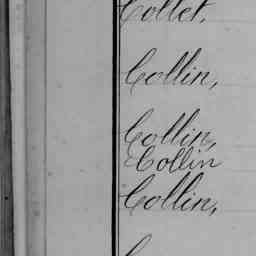 Collet,
Collin,
Collin,
Collin
Collin,